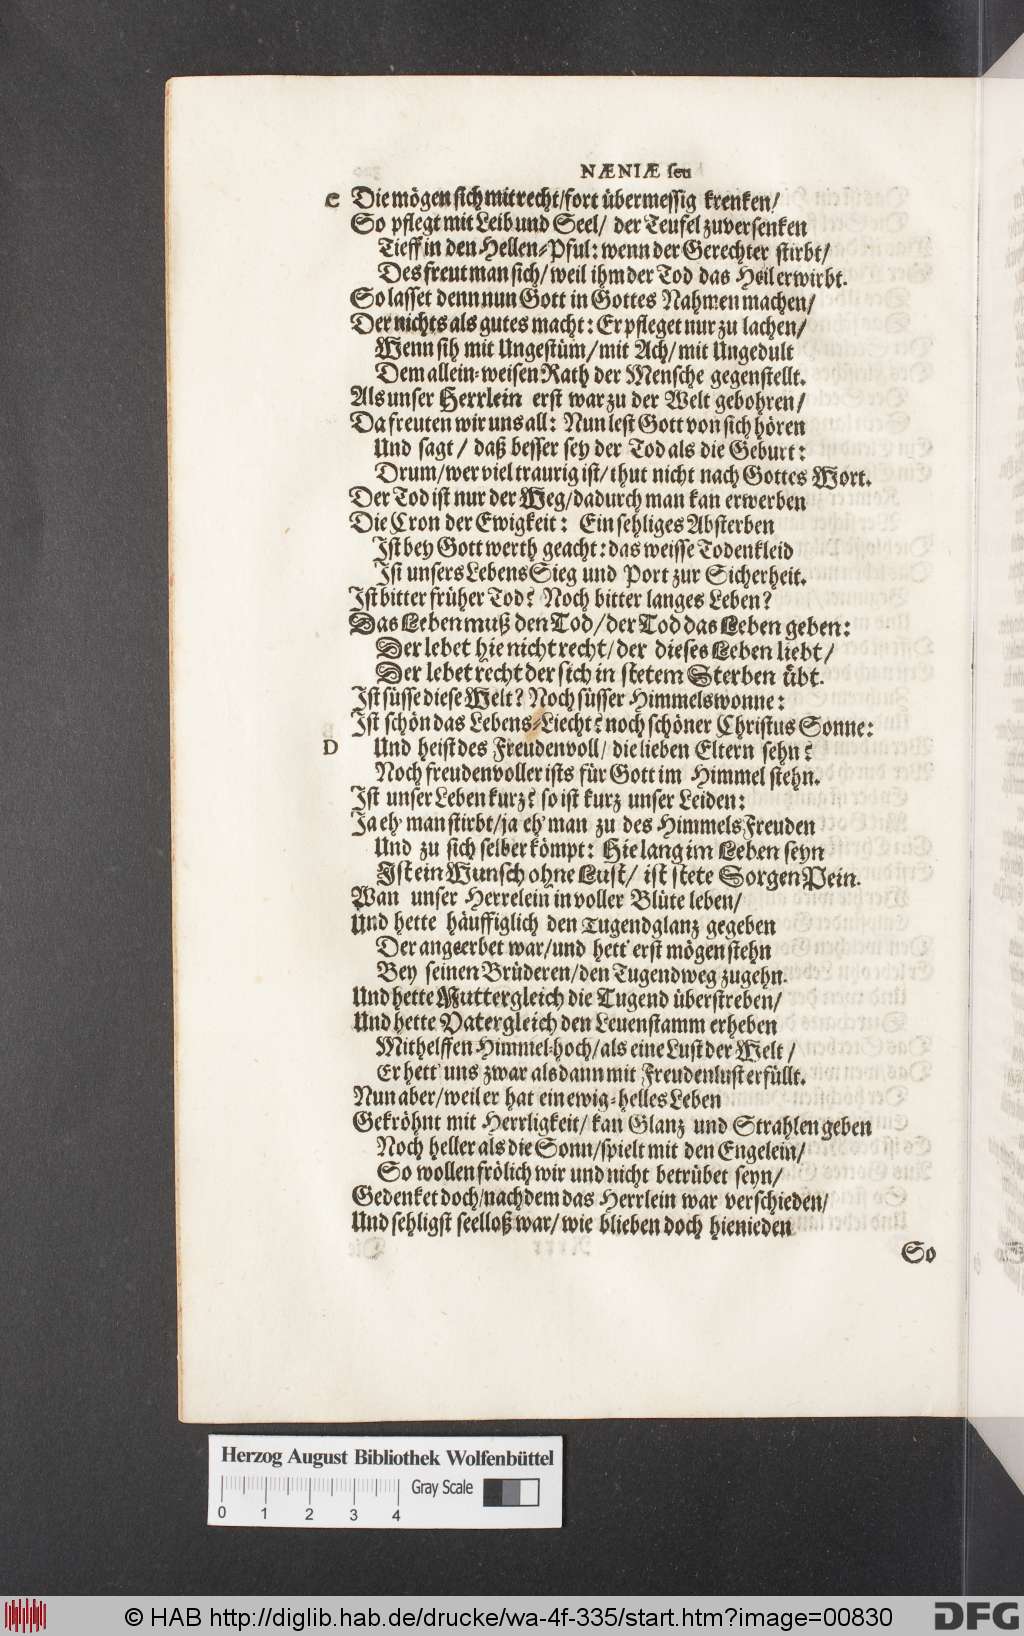 NÆNIÆ seu
C Die mögen sich mit recht/fort übermessig krenken/
So pflegt mit Leib und Seel/ der Teufel zuversenken
Tieff in den Hellen-Pful: wenn der Gerechter stirbt/
Des freut man sich/ weil ihm der Tod das Heil erwirbt.
So lasset denn nun Gott in Gottes Nahmen machen/
Der nichts als gutes macht: Er pfleget nur zu lachen/
Wenn sih mit Ungestüm/mit Ach/mit Ungedult
Dem allein-weisen Rath der Mensche gegenstellt.
Als unser Herrlein erst war zu der Welt gebohren/
Da freuten wir uns all: Nun lest Gott von sich hören
Und sagt/ daß besser sey der Tod als die Geburt:
Drum/wer viel traurig ist/thut nicht nach Gottes Wort.
Der Tod ist nur der Weg/dadurch man kan erwerben
Die Cron der Ewigkeit: Ein sehliges Absterben
Ist bey Gott werth geacht: das weisse Todenkleid
Ist unsers Lebens Sieg und Port zur Sicherheit.
Ist bitter früher Tod? Noch bitter langes Leben?
Das Leben muß den Tod/der Tod das Leben geben:
Der lebet hie nicht recht/der dieses Leben liebt/
Der lebet recht der sich in stetem Sterben übt.
Ist süsse diese Welt? Noch süsser Himmelswonne:
Ist schön das Lebens-Liecht? noch schöner Christus Sonne:
D Und heist des Freudenvoll/ die lieben Eltern sehn?
Noch freudenvoller ists für Gott im Himmel stehn.
Ist unser Leben kurz? so ist kurz unser Leiden:
Ja eh' man stirbt/ja eh' man zu des Himmels Freuden
Und zu sich selber kömpt: Hie lang im Leben seyn
Ist ein Wunsch ohne Lust/ ist stete Sorgen Pein.
Wan unser Herrelein in voller Blüte leben/
Und hette häuffiglich den Tugendglanz gegeben
Der angeerbet war/und hett' erst mögen stehn
Bey seinen Brüderen/den Tugendweg zugehn.
Und hette Muttergleich die Tugend überstreben/
Und hette Vatergleich den Leuenstamm erheben
Mithelffen Himmel-hoch/als eine Lust der Welt/
Er hett' uns zwar alsdann mit Freudenlust erfüllt.
Nun aber/weil er hat ein ewig-helles Leben
Gekröhnt mit Herrligkeit/kan Glanz und Strahlen geben
Noch heller als die Sonn/spielt mit den Engelein/
So wollen frölich wir und nicht betrübet seyn/
Gedenket doch/nachdem das Herrlein war verschieden/
Und sehligst seelloß war/wie blieben doch hienieden
So
Herzog August Bibliothek Wolfenbüttel
0 1 2 3 4 Gray Scale
© HAB http://diglib.hab.de/drucke/wa-4f-335/start.htm?image=00830
DFG